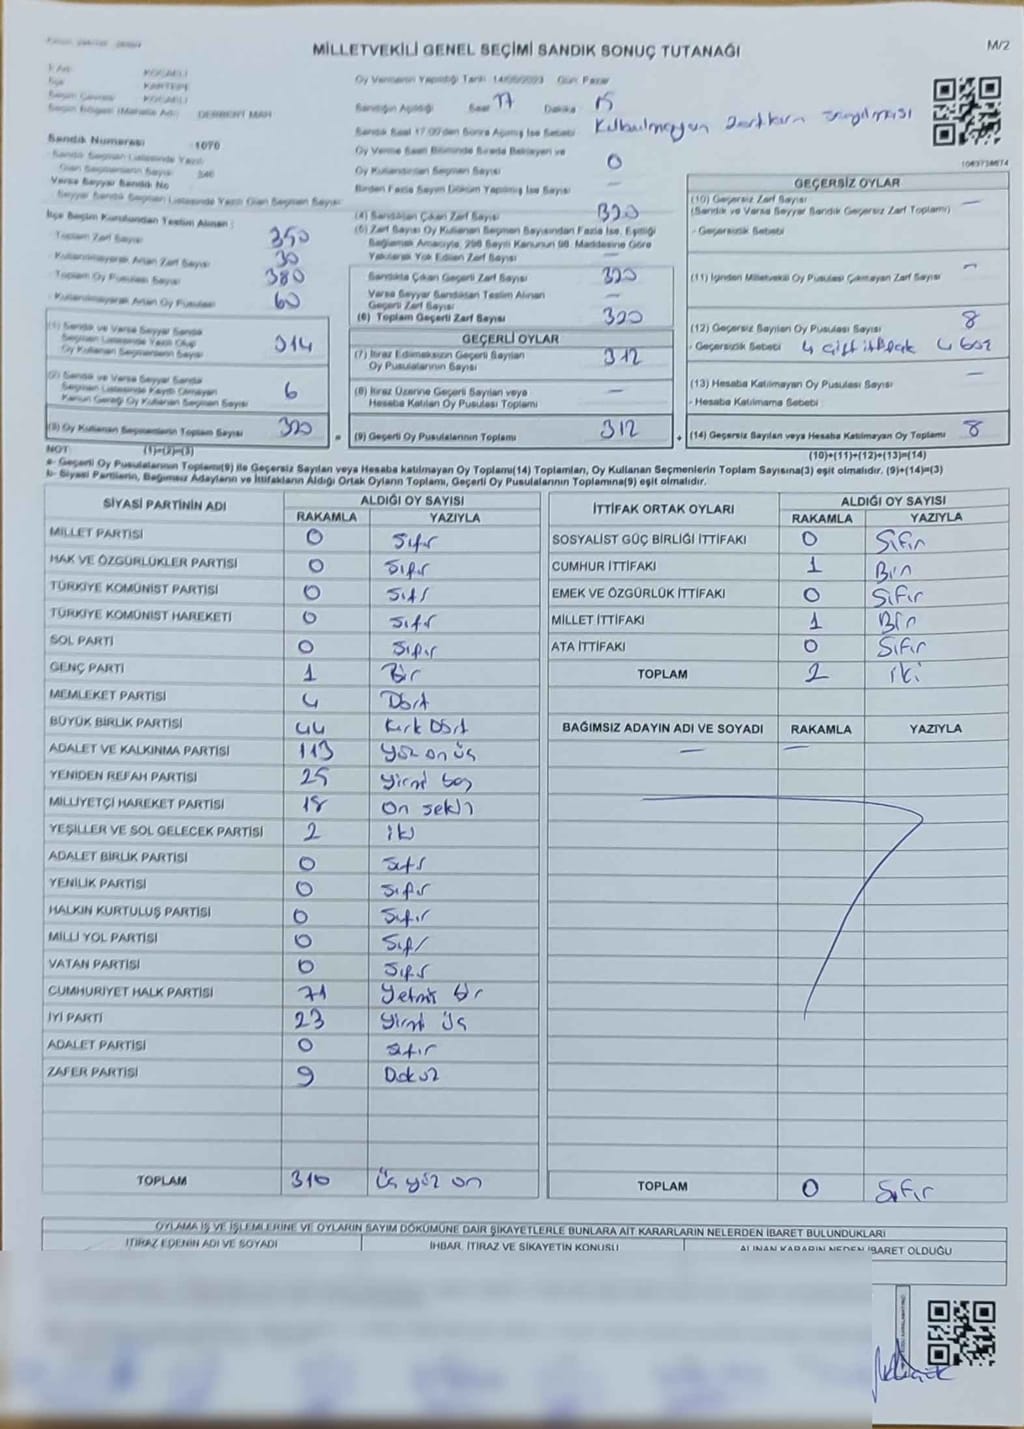 MİLLETVEKİLİ GENEL SEÇİMİ SANDIK SONUÇ TUTANAĞI
M/2
KOCAELİ
KARTEPE
KOCAELİ
Seçim Bölgesi (Mahalle Adı) : DERBENT MAH
Sandık Numarası : 1070
Sandık Seçmen Listesinde Yazılı
Olan Seçmenlerin Sayısı 346
Varsa Seyyar Sandık No
Seyyar Sandık Seçmen Listesinde Yazılı Olan Seçmen Sayısı
İlçe Seçim Kurulundan Teslim Alınan :
- Toplam Zarf Sayısı 350
- Kullanılmayarak Artan Zarf Sayısı 30
- Toplam Oy Pusulası 380
- Kullanılmayarak Artan Oy Pusulası 60
(1) Sandık ve Varsa Seyyar Sandık
Seçmen Listesinde Yazılı Olup
Oy Kullanan Seçmenlerin Sayısı 314
(2) Sandık ve Varsa Seyyar Sandık
Seçmen Listesinde Kaydı Olmayan
Kanun Gereği Oy Kullanan Seçmen Sayısı 6
(3) Oy Kullanan Seçmenlerin Toplam Sayısı 320
Oy Vermenin Yapıldığı Tarih 14/05/2023 Gün Pazar
Sandığın Açıldığı Saat 17 Dakika 15
Sandık Saat 17:00'den Sonra Açılmış İse Sebebi Kullanılmayan zarfların sayılması
Oy Verme Saati Bitiminde Sırada Bekleyen ve
Oy Kullandırılan Seçmen Sayısı 0
Birden Fazla Sayım Döküm Yapılmış İse Sayısı —
(4) Sandıktan Çıkan Zarf Sayısı 320
(5) Zarf Sayısı Oy Kullanan Seçmen Sayısından Fazla İse, Eşitliği
Sağlamak Amacıyla, 298 Sayılı Kanunun 98. Maddesine Göre
Yakılarak Yok Edilen Zarf Sayısı —
Sandıkta Çıkan Geçerli Zarf Sayısı 320
Varsa Seyyar Sandıktan Teslim Alınan
Geçerli Zarf Sayısı —
(6) Toplam Geçerli Zarf Sayısı 320
GEÇERLİ OYLAR
(7) İtiraz Edilmeksizin Geçerli Sayılan
Oy Pusulalarının Sayısı 312
(8) İtiraz Üzerine Geçerli Sayılan veya
Hesaba Katılan Oy Pusulası Toplamı —
= (9) Geçerli Oy Pusulalarının Toplamı 312
1063738674
GEÇERSİZ OYLAR
(10) Geçersiz Zarf Sayısı —
(Sandık ve Varsa Seyyar Sandık Geçersiz Zarf Toplamı)
- Geçersizlik Sebebi
(11) İçinden Milletvekili Oy Pusulası Çıkmayan Zarf Sayısı —
(12) Geçersiz Sayılan Oy Pusulası Sayısı 8
- Geçersizlik Sebebi 4 çift ittifak 4 boz
(13) Hesaba Katılmayan Oy Pusulası Sayısı —
- Hesaba Katılmama Sebebi
+ (14) Geçersiz Sayılan veya Hesaba Katılmayan Oy Toplamı 8
NOT: (1)+(2)=(3) (10)+(11)+(12)+(13)=(14)
a- Geçerli Oy Pusulalarının Toplamı(9) ile Geçersiz Sayılan veya Hesaba katılmayan Oy Toplamı(14) Toplamları, Oy Kullanan Seçmenlerin Toplam Sayısına(3) eşit olmalıdır. (9)+(14)=(3)
b- Siyasi Partilerin, Bağımsız Adayların ve İttifakların Aldığı Ortak Oyların Toplamı, Geçerli Oy Pusulalarının Toplamına(9) eşit olmalıdır.
SİYASİ PARTİNİN ADI ALDIĞI OY SAYISI
RAKAMLA YAZIYLA
MİLLET PARTİSİ 0 Sıfır
HAK VE ÖZGÜRLÜKLER PARTİSİ 0 Sıfır
TÜRKİYE KOMÜNİST PARTİSİ 0 Sıfır
TÜRKİYE KOMÜNİST HAREKETİ 0 Sıfır
SOL PARTİ 0 Sıfır
GENÇ PARTİ 1 Bir
MEMLEKET PARTİSİ 4 Dört
BÜYÜK BİRLİK PARTİSİ 44 Kırk Dört
ADALET VE KALKINMA PARTİSİ 113 yüz on üç
YENİDEN REFAH PARTİSİ 25 yirmi beş
MİLLİYETÇİ HAREKET PARTİSİ 18 on sekiz
YEŞİLLER VE SOL GELECEK PARTİSİ 2 iki
ADALET BİRLİK PARTİSİ 0 Sıfır
YENİLİK PARTİSİ 0 Sıfır
HALKIN KURTULUŞ PARTİSİ 0 Sıfır
MİLLİ YOL PARTİSİ 0 Sıfır
VATAN PARTİSİ 0 Sıfır
CUMHURİYET HALK PARTİSİ 71 Yetmiş bir
İYİ PARTİ 23 yirmi üç
ADALET PARTİSİ 0 Sıfır
ZAFER PARTİSİ 9 Dokuz
TOPLAM 310 Üç yüz on
İTTİFAK ORTAK OYLARI ALDIĞI OY SAYISI
RAKAMLA YAZIYLA
SOSYALİST GÜÇ BİRLİĞİ İTTİFAKI 0 Sıfır
CUMHUR İTTİFAKI 1 Bir
EMEK VE ÖZGÜRLÜK İTTİFAKI 0 Sıfır
MİLLET İTTİFAKI 1 Bir
ATA İTTİFAKI 0 Sıfır
TOPLAM 2 iki
BAĞIMSIZ ADAYIN ADI VE SOYADI RAKAMLA YAZIYLA
— —
TOPLAM 0 Sıfır
OYLAMA İŞ VE İŞLEMLERİNE VE OYLARIN SAYIM DÖKÜMÜNE DAİR ŞİKAYETLERLE BUNLARA AİT KARARLARIN NELERDEN İBARET BULUNDUKLARI
İTİRAZ EDENİN ADI VE SOYADI İHBAR, İTİRAZ VE ŞİKAYETİN KONUSU ALINAN KARARIN NEDEN İBARET OLDUĞU